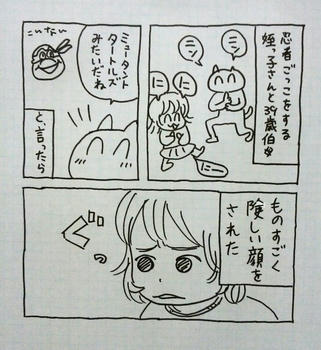 忍者ごっこをする
姪っ子さんと39歳伯母
ニン
ニン
に
に
にー
ミュータント
タートルズ
みたいだね
と、言ったら
ものすごく
険しい顔を
された
ぐっ